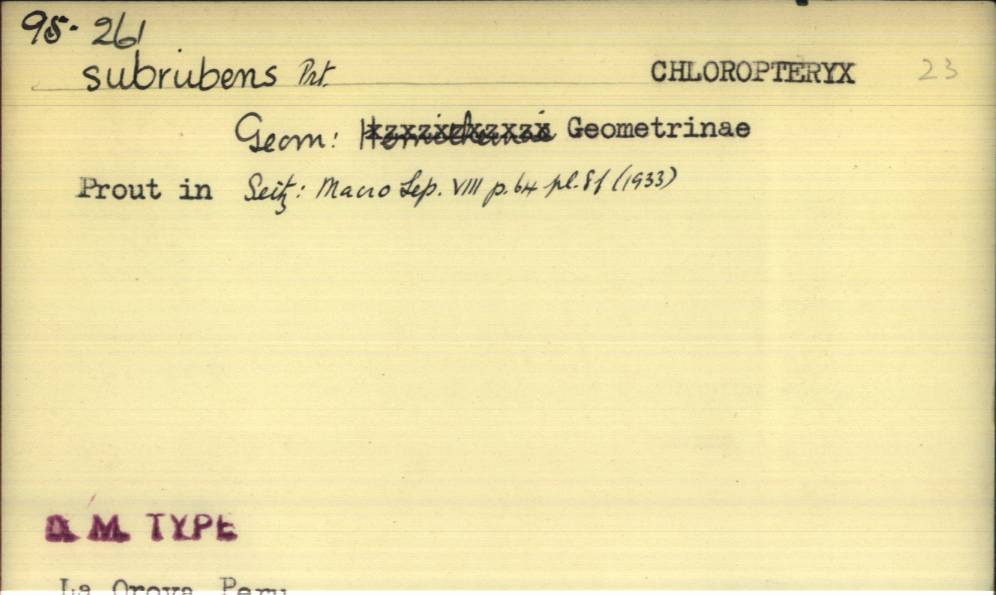 95. 261
subrubens Prt. CHLOROPTERYX 23
Geom: Geometrinae
Prout in Seitz: Macro Lep. VIII p. 64 pl. 8f (1933)
B. M. TYPE
La Oroya, Peru